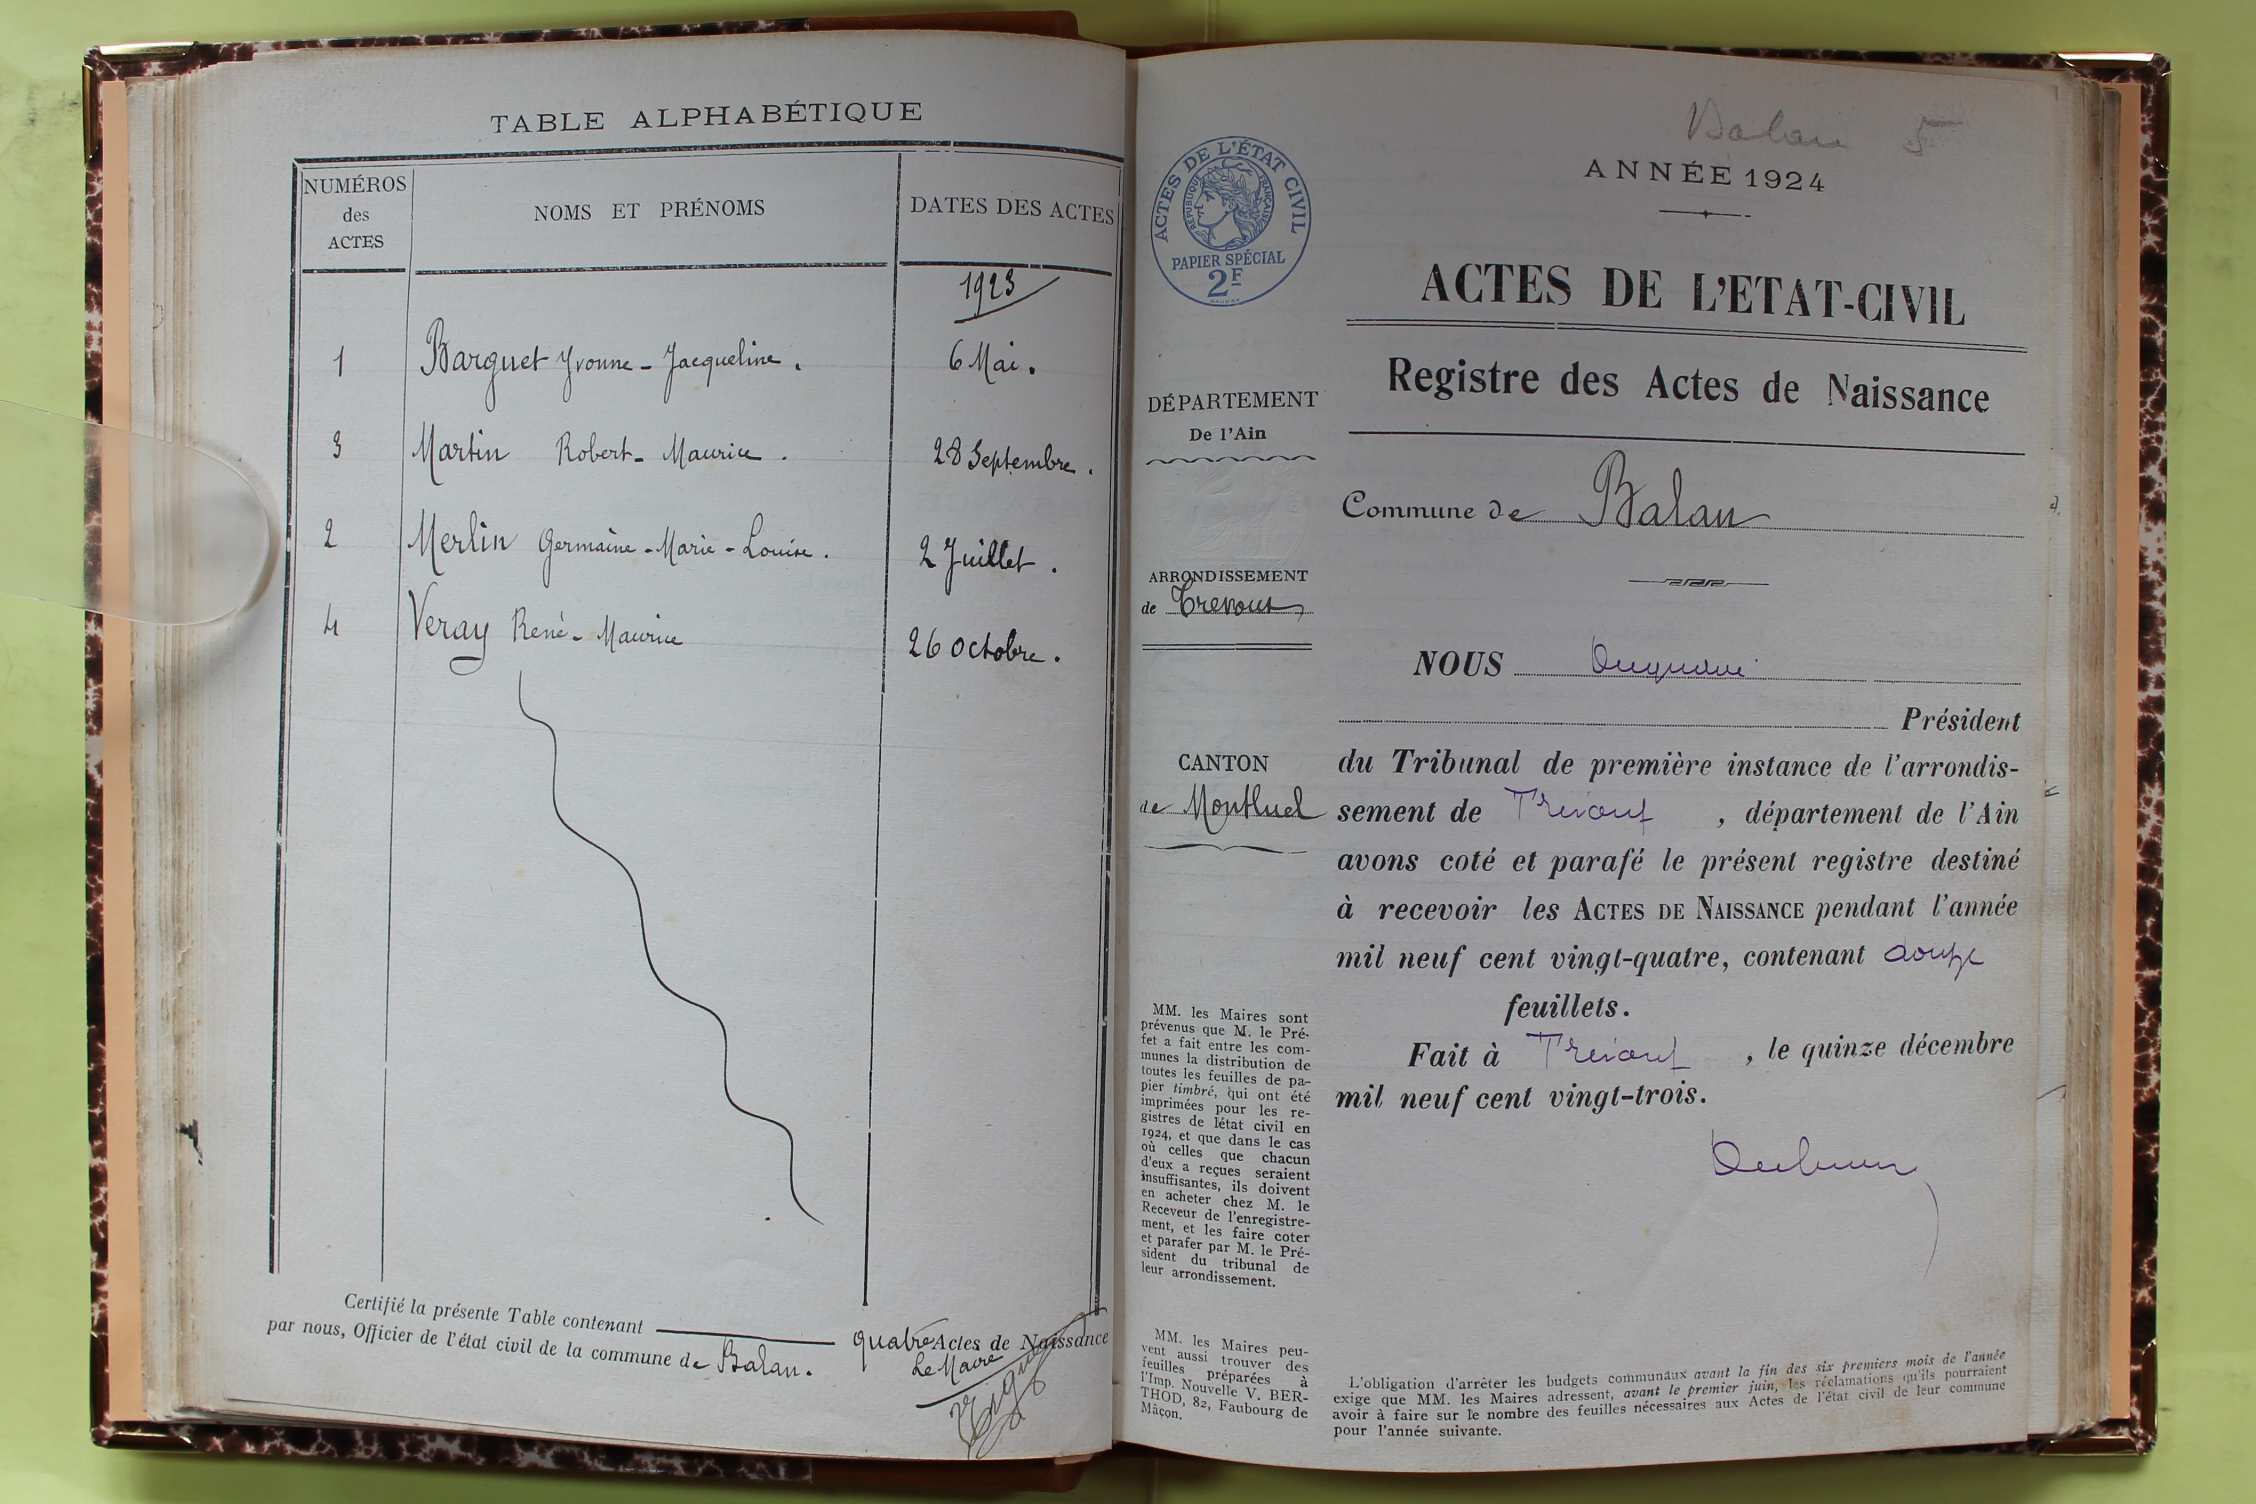 TABLE ALPHABÉTIQUE
NUMÉROS
des
ACTES
NOMS ET PRÉNOMS
DATES DES ACTES
1923
1 Barguet Yvonne - Jacqueline. 6 Mai.
3 Martin Robert - Maurice. 28 Septembre.
2 Merlin Germaine - Marie - Louise. 2 Juillet.
4 Veray René - Maurice 26 Octobre.
Certifié la présente Table contenant quatre Actes de Naissance
par nous, Officier de l'état civil de la commune de Balan.
Le Maire
Balan 5
ANNÉE 1924
ACTES DE L'ÉTAT CIVIL
RÉPUBLIQUE FRANÇAISE
PAPIER SPÉCIAL
2F
ACTES DE L'ETAT-CIVIL
Registre des Actes de Naissance
DÉPARTEMENT
De l'Ain
Commune de Balan
ARRONDISSEMENT
de Trévoux
CANTON
de Montluel
NOUS
Président
du Tribunal de première instance de l'arrondis-
sement de Trévoux, département de l'Ain
avons coté et parafé le présent registre destiné
à recevoir les ACTES DE NAISSANCE pendant l'année
mil neuf cent vingt-quatre, contenant douze
feuillets.
Fait à Trévoux, le quinze décembre
mil neuf cent vingt-trois.
MM. les Maires sont
prévenus que M. le Pré-
fet a fait entre les com-
munes la distribution de
toutes les feuilles de pa-
pier timbré, qui ont été
imprimées pour les re-
gistres de l'état civil en
1924, et que dans le cas
où celles que chacun
d'eux a reçues seraient
insuffisantes, ils doivent
en acheter chez M. le
Receveur de l'enregistre-
ment, et les faire coter
et parafer par M. le Pré-
sident du tribunal de
leur arrondissement.
MM. les Maires peu-
vent aussi trouver des
feuilles préparées à
l'Imp. Nouvelle V. BER-
THOD, 82, Faubourg de
Mâcon.
L'obligation d'arrêter les budgets communaux avant la fin des six premiers mois de l'année
exige que MM. les Maires adressent, avant le premier juin, les réclamations qu'ils pourraient
avoir à faire sur le nombre des feuilles nécessaires aux Actes de l'état civil de leur commune
pour l'année suivante.